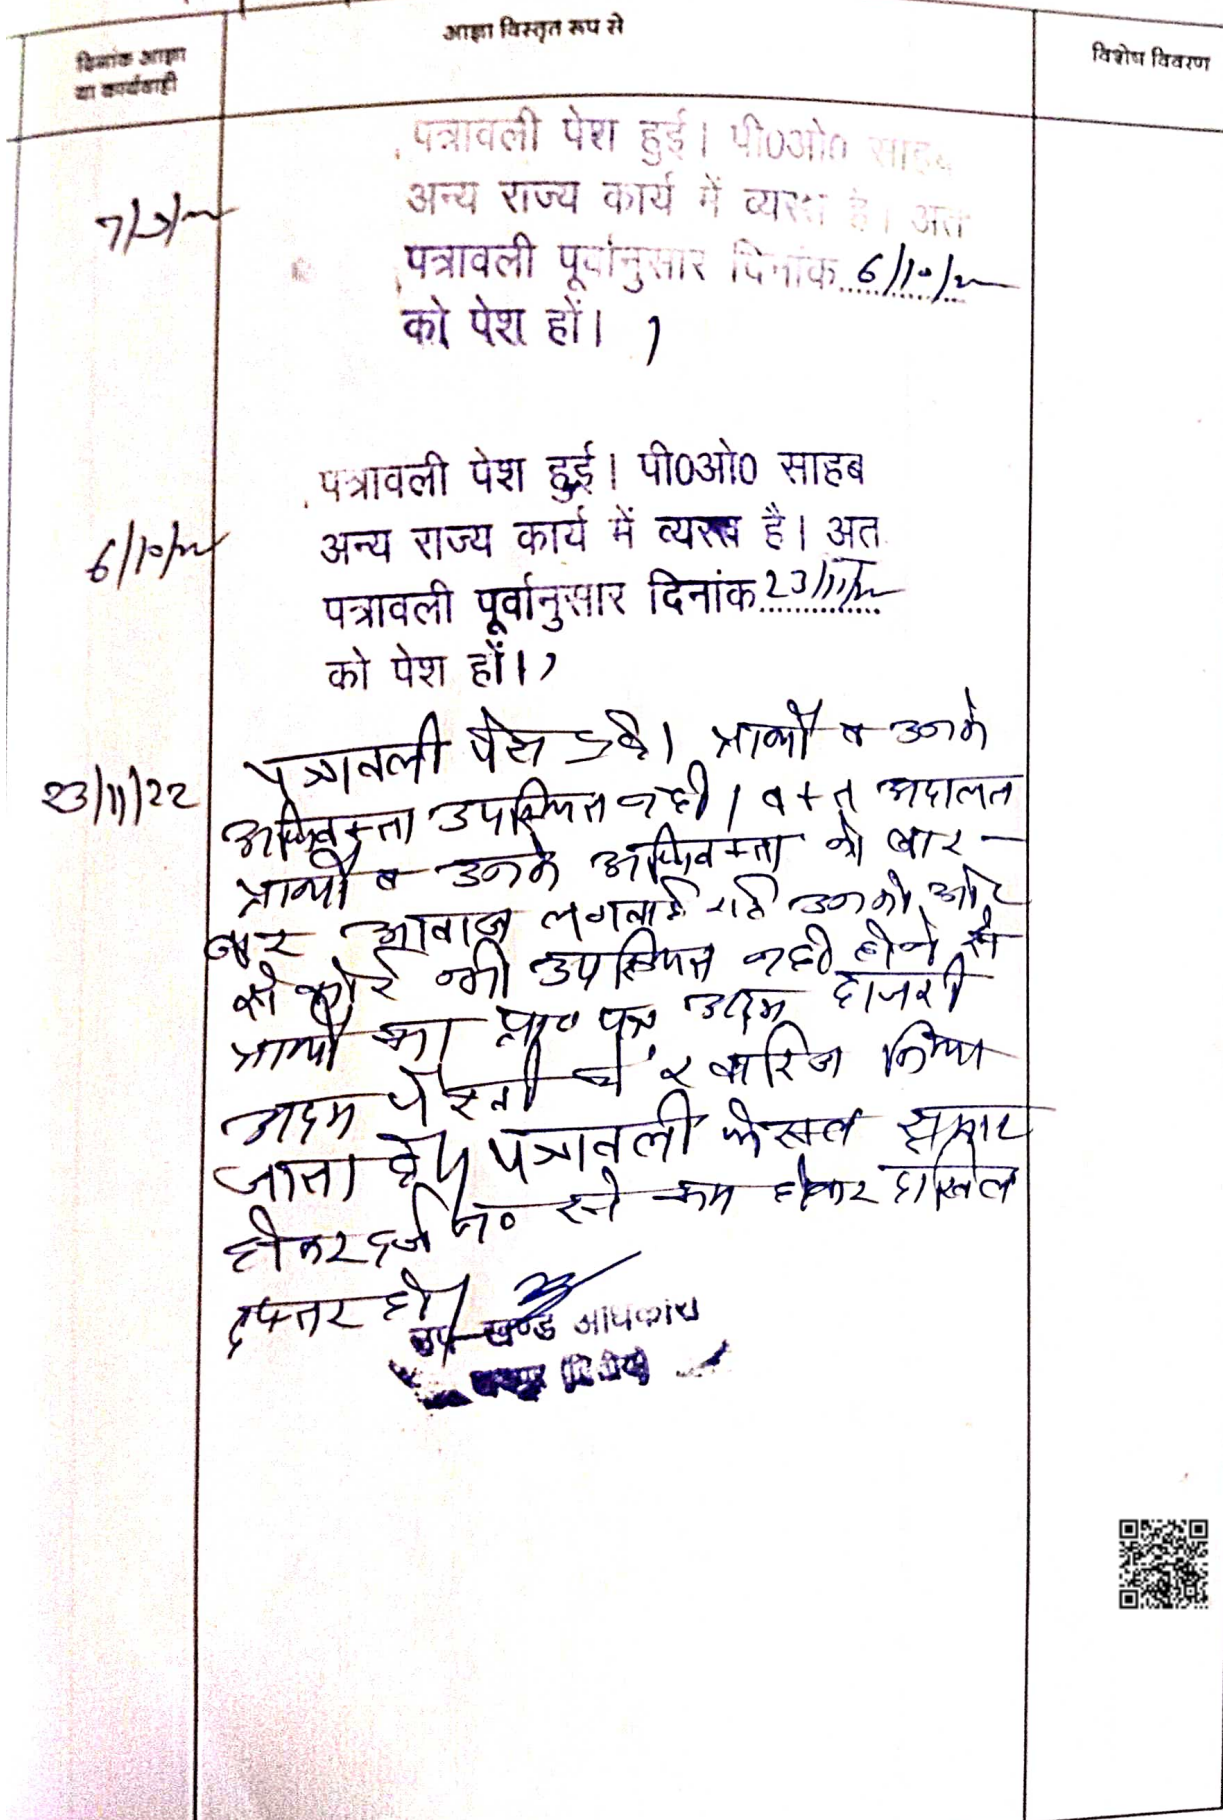 दिनांक आज्ञा
या कार्यवाही
आज्ञा विस्तृत रूप से
विशेष विवरण
पत्रावली पेश हुई। पी0ओ0 साहब
अन्य राज्य कार्य में व्यस्त है। अत
पत्रावली पूर्वानुसार दिनांक 6/10/22
को पेश हों।
6/10/22
पत्रावली पेश हुई। पी0ओ0 साहब
अन्य राज्य कार्य में व्यस्त है। अत
पत्रावली पूर्वानुसार दिनांक 23/11/22
को पेश हों।
23/11/22
पत्रावली पेश हुई। प्रार्थी व उनके
अधिवक्ता उपस्थित नही। वक्त अदालत
प्रार्थी व उनके अधिवक्ता को बार-
बार आवाज लगवाई गई उनकी ओर
से कोई भी उपस्थित नही होने से
प्रार्थी का प्रा० पत्र अदम हाजरी
अदम पैरवी में खारिज किया
जाता है। पत्रावली फैसल शुमार
होकर दर्ज नं० से कम होकर दाखिल
दफ्तर हो।
उप खण्ड अधिकारी